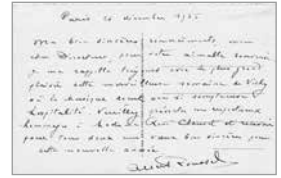 Paris 26 décembre 1935
Mes bien sincères remerciements, mon
cher Directeur, pour votre aimable souvenir
je me rappelle toujours avec le plus grand
plaisir cette merveilleuse semaine de Vichy
où la musique reçut une si somptueuse
hospitalité. Veuillez présenter mes respectueux
hommages à Madame et recevoir
pour tous deux mes vœux bien sincères pour
cette nouvelle année
Albert Roussel